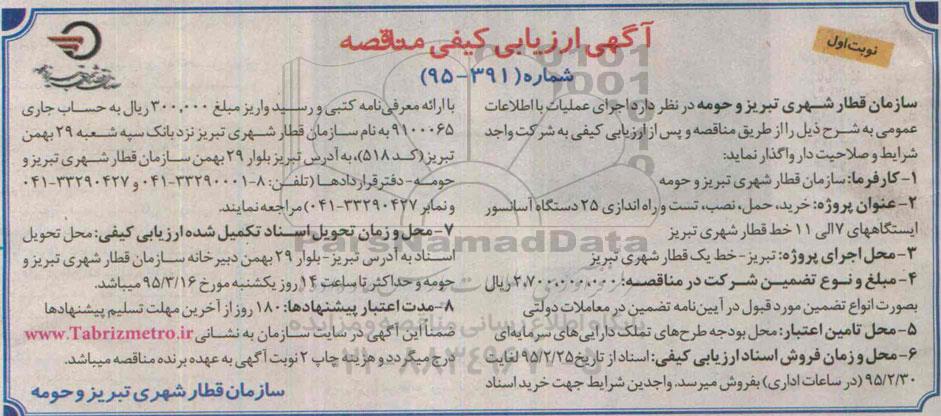 نوبت اول
آگهی ارزیابی کیفی مناقصه
شماره (۳۹۱-۹۵)
سازمان قطار شهری تبریز و حومه در نظر دارد اجرای عملیات با اطلاعات
عمومی به شرح ذیل را از طریق مناقصه و پس از ارزیابی کیفی به شرکت واجد
شرایط و صلاحیت دار واگذار نماید:
۱-کارفرما: سازمان قطار شهری تبریز و حومه
۲-عنوان پروژه: خرید، حمل، نصب، تست و راه اندازی ۲۵ دستگاه آسانسور
ایستگاههای ۷ الی ۱۱ خط قطار شهری تبریز
۳-محل اجرای پروژه: تبریز- خط یک قطار شهری تبریز
۴-مبلغ و نوع تضمین شرکت در مناقصه: ۲.۷۰۰.۰۰۰.۰۰۰ ریال
بصورت انواع تضمین مورد قبول در آیین‌نامه تضمین در معاملات دولتی
۵-محل تامین اعتبار: محل بودجه طرح‌های تملک دارایی‌های سرمایه‌ای
۶-محل و زمان فروش اسناد ارزیابی کیفی: اسناد از تاریخ ۹۵/۲/۲۵ لغایت
۹۵/۲/۳۰ (در ساعات اداری) بفروش میرسد. واجدین شرایط جهت خرید اسناد
با ارائه معرفی نامه کتبی و رسید واریز مبلغ ۳۰۰,۰۰۰ ریال به حساب جاری
۹۱۰۰۰۶۵ به نام سازمان قطار شهری تبریز نزد بانک سپه شعبه ۲۹ بهمن
تبریز (کد ۵۱۸)، به آدرس تبریز بلوار ۲۹ بهمن سازمان قطار شهری تبریز و
حومه- دفتر قراردادها (تلفن: ۸-۳۳۲۹۰۰۰۱-۰۴۱ و ۳۳۲۹۰۴۲۷-۰۴۱
و نمابر ۳۳۲۹۰۴۲۷-۰۴۱) مراجعه نمایند.
۷-محل و زمان تحویل اسناد تکمیل شده ارزیابی کیفی: محل تحویل
اسناد به آدرس تبریز- بلوار ۲۹ بهمن دبیرخانه سازمان قطار شهری تبریز و
حومه و حداکثر تا ساعت ۱۴ روز یکشنبه مورخ ۹۵/۳/۱۶ میباشد.
۸-مدت اعتبار پیشنهادها: ۱۸۰ روز از آخرین مهلت تسلیم پیشنهادها
ضمناً این آگهی در سایت سازمان به نشانی www.Tabrizmetro.ir
درج میگردد و هزینه چاپ ۲ نوبت آگهی به عهده برنده مناقصه میباشد.
سازمان قطار شهری تبریز و حومه
ParsNamadData